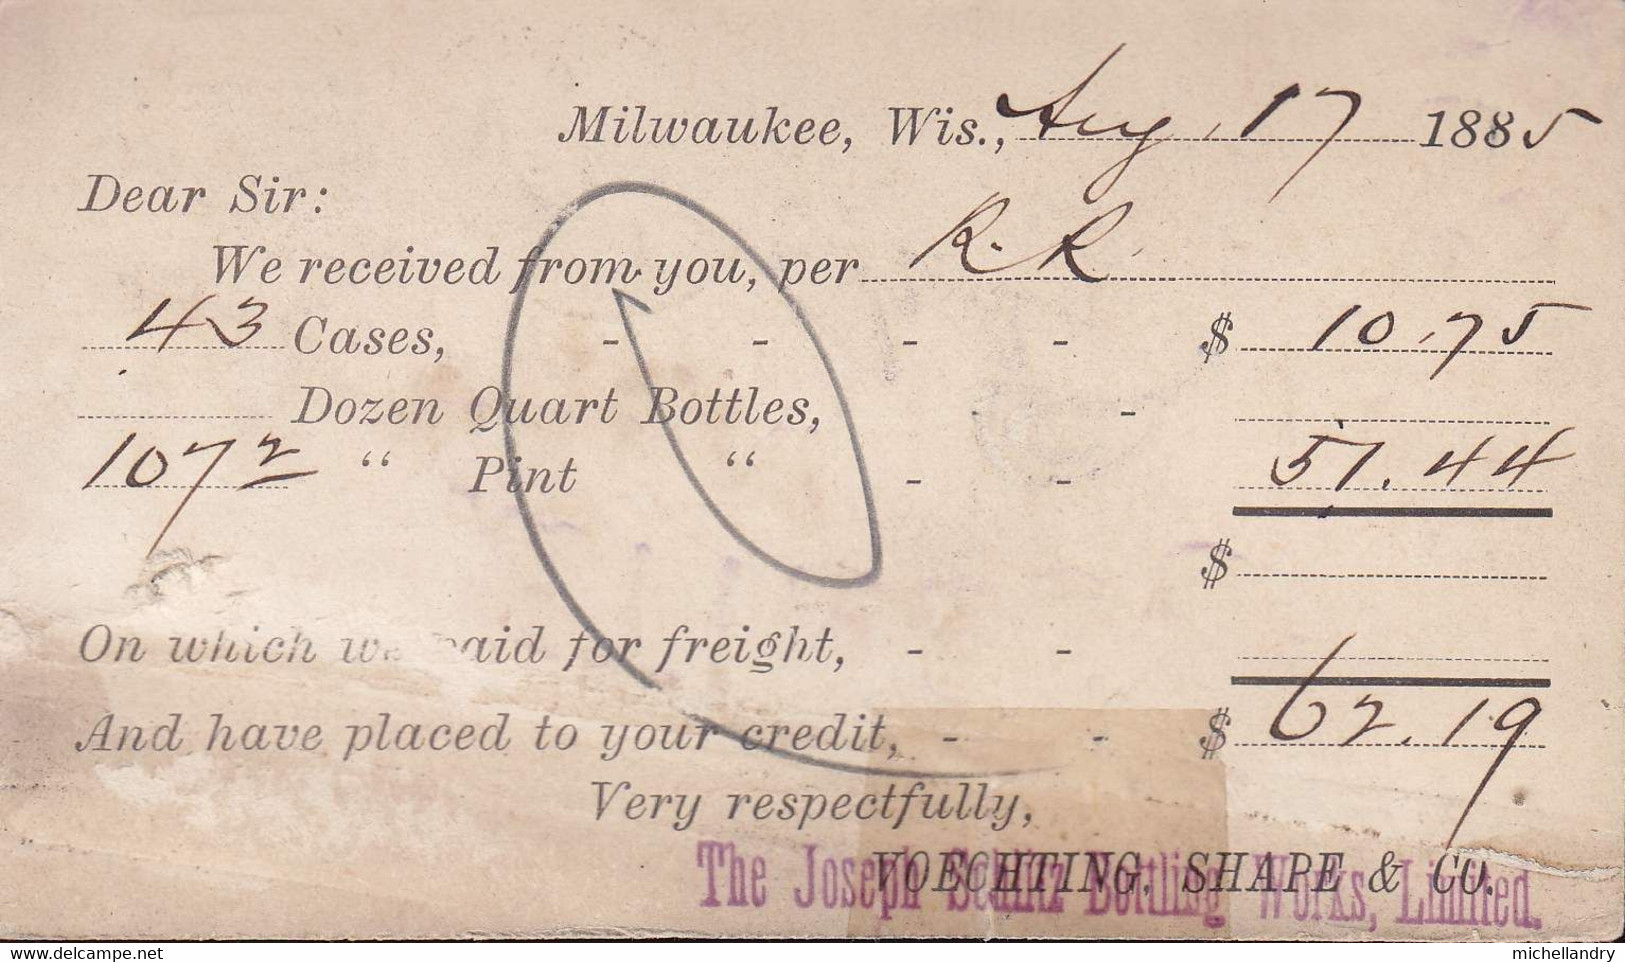 Milwaukee, Wis., Aug. 17 1885
Dear Sir:
We received from you, per R. R.
43 Cases, - - - - $ 10.75
Dozen Quart Bottles, - -
107 2 “ Pint “ - - 51.44
$
On which we paid for freight, - -
And have placed to your credit, - - $ 62.19
Very respectfully,
VOECHTING, SHAPE & CO.
The Joseph Schlitz Bottling Works, Limited.
delcampe.net
michellandry